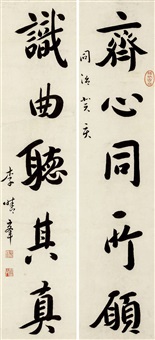 齊心同所願
同治癸亥
識曲聽其真
李